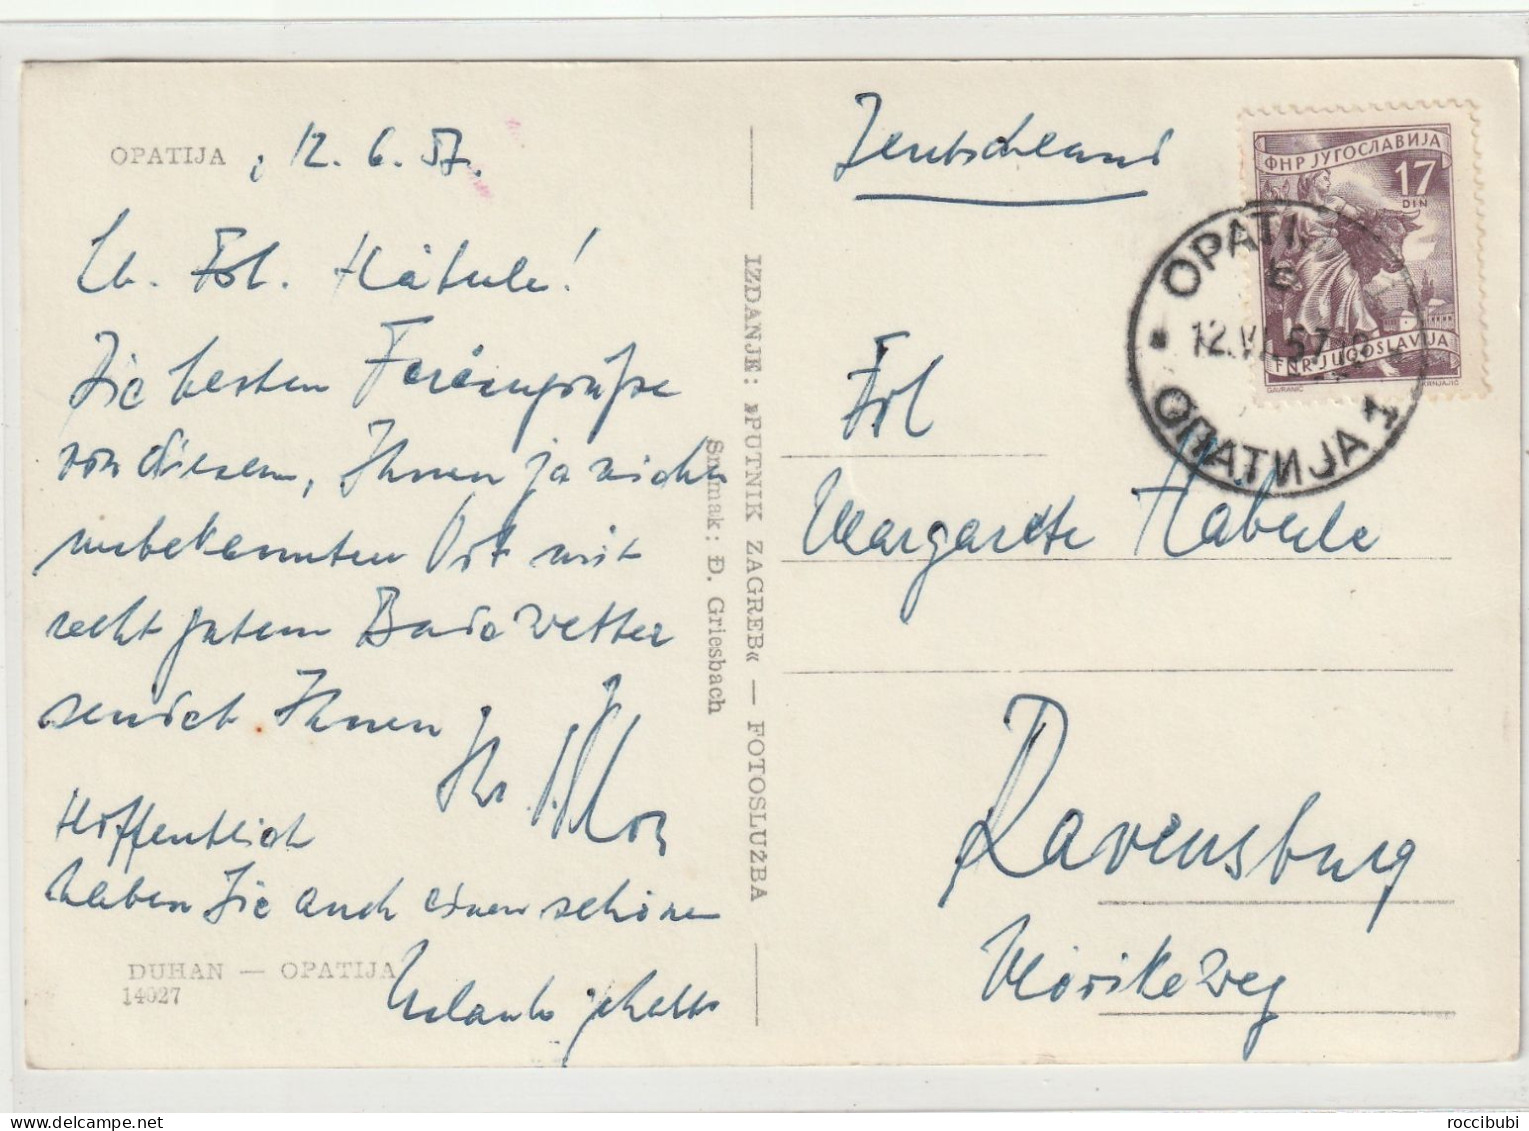 OPATIJA , 12. 6. 57.
Lb. Frl. Häberle!
Die besten Feriengrüße
von diesem, Ihnen ja nicht
unbekannten Ort mit
recht gutem Badewetter
sendet Ihnen
Ihr
Hoffentlich
haben Sie auch einen schönen
Urlaub gehabt
DUHAN — OPATIJA
14027
IZDANJE: »PUTNIK ZAGREB« — FOTOSLUŽBA
Snimak: Đ. Griesbach
Deutschland
ФНР ЈУГОСЛАВИЈА
17
DIN
FNR JUGOSLAVIJA
KRNJAJIĆ
OPATI
12.VI.57
ОПАТИЈА 1
Frl
Margarete Häberle
Ravensburg
Mörikeweg
roccibubi